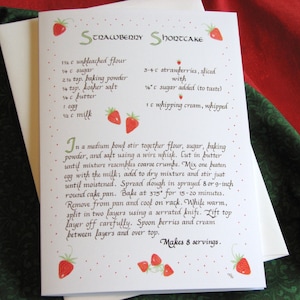 Strawberry Shortcake
1¾ c unbleached flour
¼ c sugar
2½ tsp. baking powder
½ tsp. kosher salt
½ c butter
1 egg
½ c milk
3-4 c strawberries, sliced
with
¼ c sugar added (to taste)
1 c whipping cream, whipped
In a medium bowl stir together flour, sugar, baking
powder, and salt using a wire whisk. Cut in butter
until mixture resembles coarse crumbs. Mix one beaten
egg with the milk; add to dry mixture and stir just
until moistened. Spread dough in sprayed 8 or 9-inch
round cake pan. Bake at 375° for 15-20 minutes.
Remove from pan and cool on rack. While warm,
split in two layers using a serrated knife. Lift top
layer off carefully. Spoon berries and cream
between layers and over top.
Makes 8 servings.